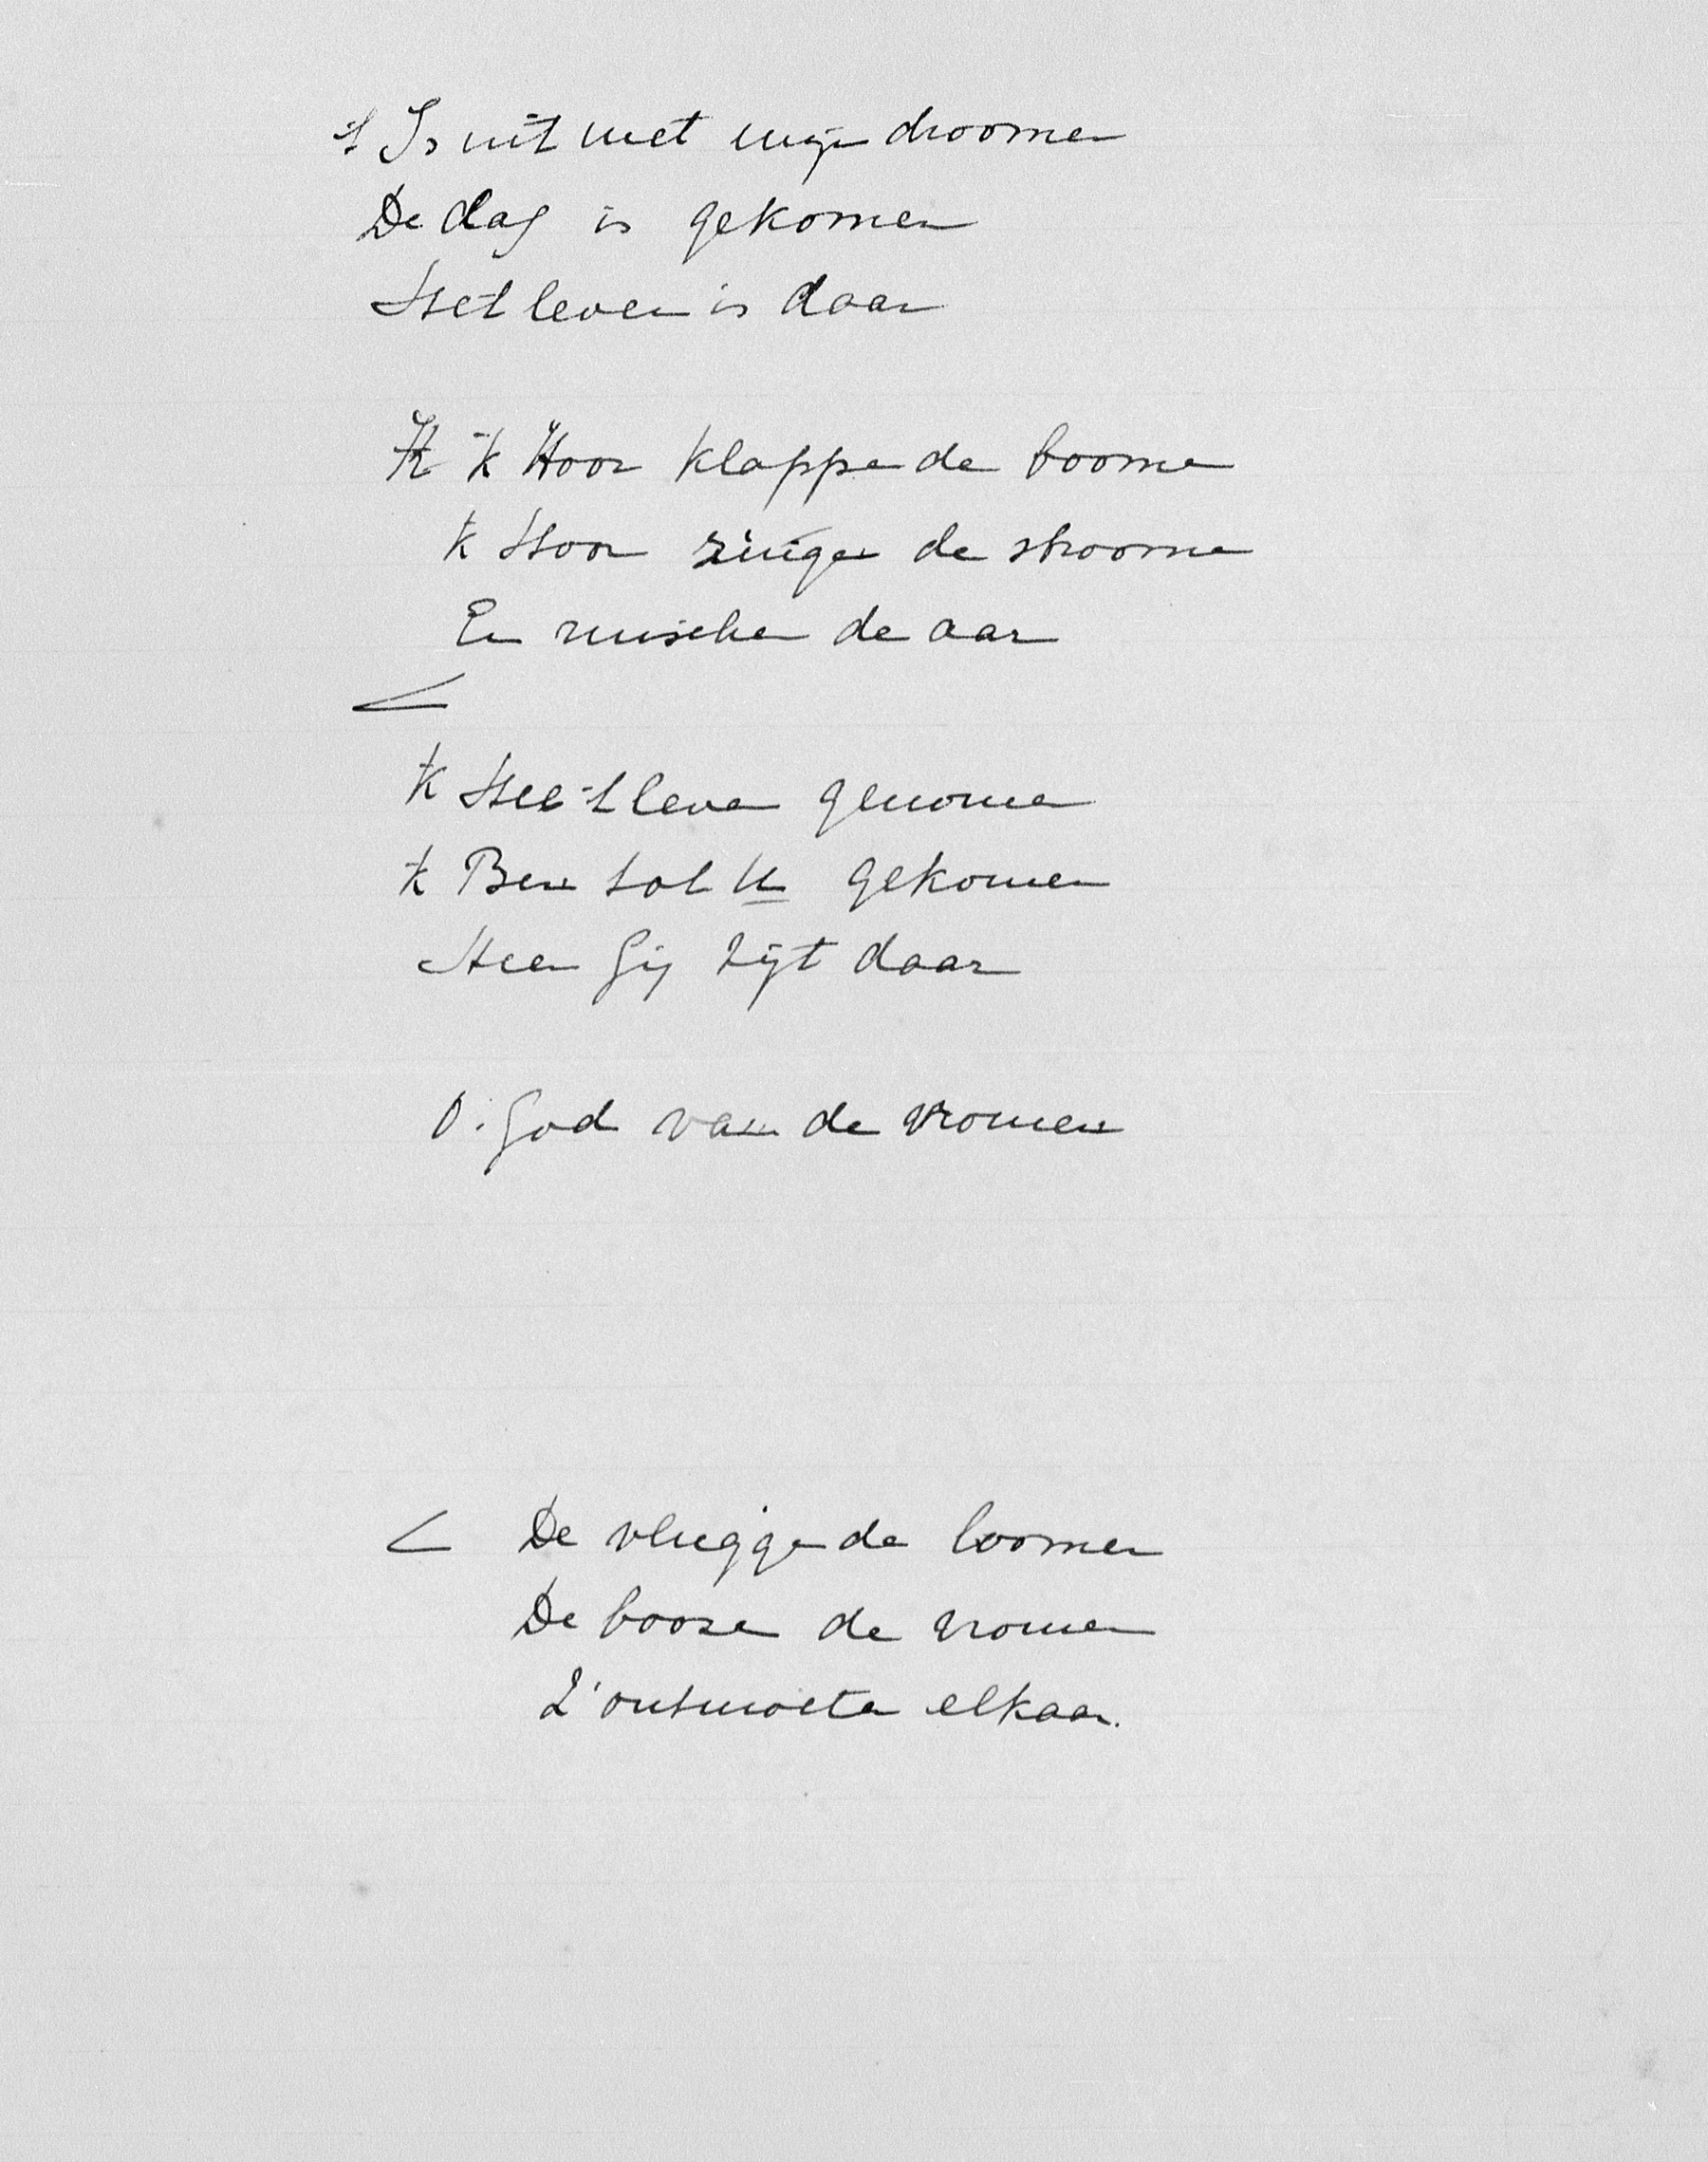 't Is uit met mijn droomen
De dag is gekomen
Het leven is daar
'k Hoor klappen de boomen
'k Hoor zingen de stroomen
En ruischen de aar
'k Heb 't leven genomen
'k Ben tot U gekomen
Heer Gij zijt daar
O. God van de vromen
De vluggen de loomen
De boozen de vromen
Z' ontmoeten elkaar.